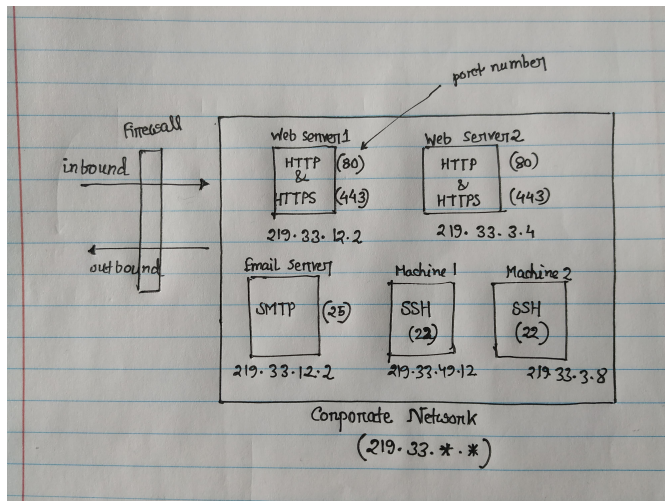 port number
Firewall
inbound
outbound
Web server1
HTTP (80)
&
HTTPS (443)
219.33.12.2
Web server2
HTTP (80)
&
HTTPS (443)
219.33.3.4
Email server
SMTP (25)
219.33.12.2
Machine 1
SSH
(22)
219.33.49.12
Machine 2
SSH
(22)
219.33.3.8
Corporate Network
(219.33.*.*)